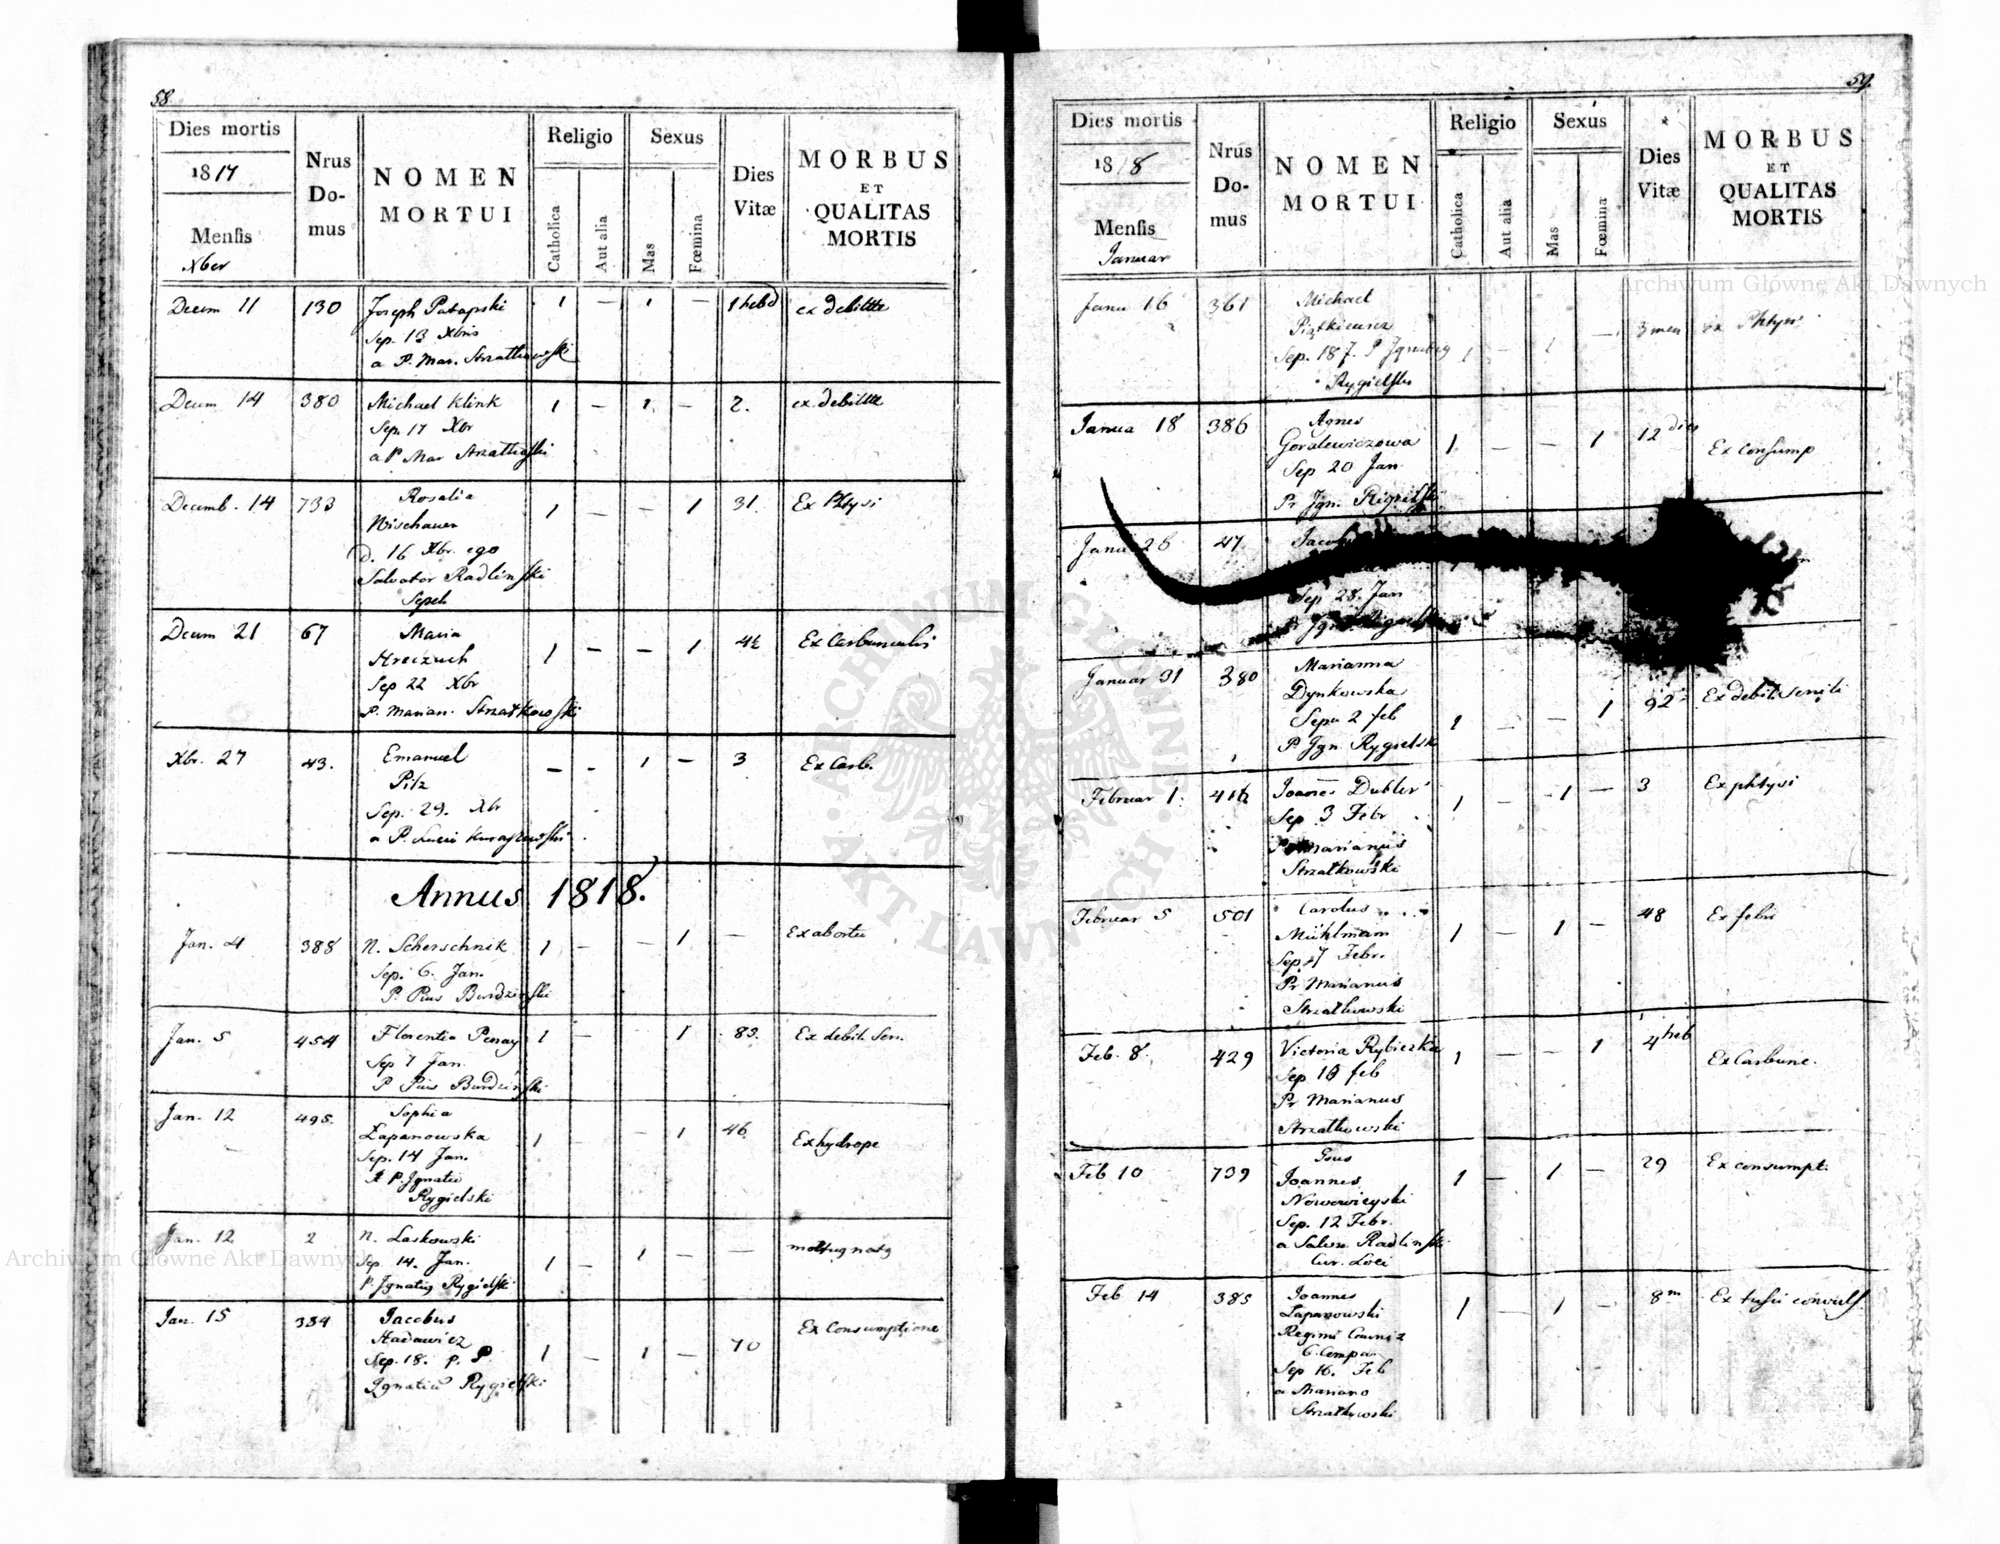 58.
Dies mortis
1817
Mensis
Xber
Nrus
Do-
mus
NOMEN
MORTUI
Religio
Catholica
Aut alia
Sexus
Mas
Fœmina
Dies
Vitæ
MORBUS
ET
QUALITAS
MORTIS
Decem 11 130 Joseph Patapski 1 — 1 — 1 hebd ex debilitte
Sep. 13 Xbris
a P. Mar. Strzatkowski
Decem 14 380 Michael Klink 1 — 1. — 2. ex debilitte
Sep. 17 Xbr
a P Mar Strzatkoski
Decemb. 14 733 Rosalia 1 — — 1 31. Ex Phtysi
Wischauer
d. 16 Xbr. ego
Salvator Radlinski
Sepel.
Decem 21 67 Maria 1 — — 1 42 Ex Carbunculis
Hreczuch
Sep 22 Xbr
P. Marian. Strzatkowski
Xbr. 27 43. Emanuel — - 1 — 3 Ex Carb.
Pilz
Sep. 29. Xbr
a P. Lucio
Annus 1818.
Jan. 4 388 N. Scherschnik 1 — — 1 — Ex abortu
Sep. 6. Jan.
P. Pius Burdzinski
Jan. 5 454 Florentia 1 — 1 83. Ex debit. Sen.
Sep 7 Jan.
P Pius Burdzinski
Jan. 12 495. Sophia 1 — 1 46. Ex hydrope
Łapanowska
Sep. 14 Jan.
A P. Ignatio
Rygielski
Jan. 12 2 N. Laskowski 1 — 1 — —
Sep. 14. Jan.
P. Ignatius Rygielski
Jan. 15 384 Jacobus 1 — 1 — 70 Ex Consumptione
Hadawicz
Sep. 18. p. P.
Ignatiu Rygielski
59.
Dies mortis
1818
Mensis
Januar
Nrus
Do-
mus
NOMEN
MORTUI
Religio
Catholica
Aut alia
Sexus
Mas
Fœmina
Dies
Vitæ
MORBUS
ET
QUALITAS
MORTIS
Janu 16 361 Michael 1 — 1 — 3 men ex Phtysi
Piątkiewicz
Sep. 18 J. P
Rygielski
Janua 18 386 Agnes 1 — — 1 12 dies Ex Consump
Goralewiczowa
Sep 20 Jan
Pr Ign. Rigielski
Janu 26 47.
Sep 28. Jan
P Ign. Rigielski
Januar 31 380 Marianna 1 — — 1 92 Ex debit. Senili
Dynkowska
Sepu 2 feb
P Ign. Rygielsk
Februar 1. Joannes Dubler 1 — 1 — 3 Ex phtysi
Sep 3 Febr
P Marianus
Strzatkowski
Februar 5 501 Carolus 1 — 1 — 48 Ex febri
Mühlmann
Sep. 7 Febr.
Pr Marianus
Strzatkowski
Feb. 8. 429 Victoria Rybiczka 1 — — 1 4 heb Ex Carbunc.
Sep 10 feb
Pr Marianus
Strzatkowski
Feb 10 739 Joannes 1 — 1 — 29 Ex consumpt.
Nowowieyski
Sep. 12 Febr.
a Salva Radlinski
Cur. Loci
Feb 14 385 Joannes 1 — 1 — 8 m Ex tussi convuls.
Lapanowski
Sep 16. Feb
a Mariano
Strzatkowski
Archiwum Główne Akt Dawnych
Archiwum Główne Akt Dawnych
ARCHIWUM GŁÓWNE
AKT DAWNYCH